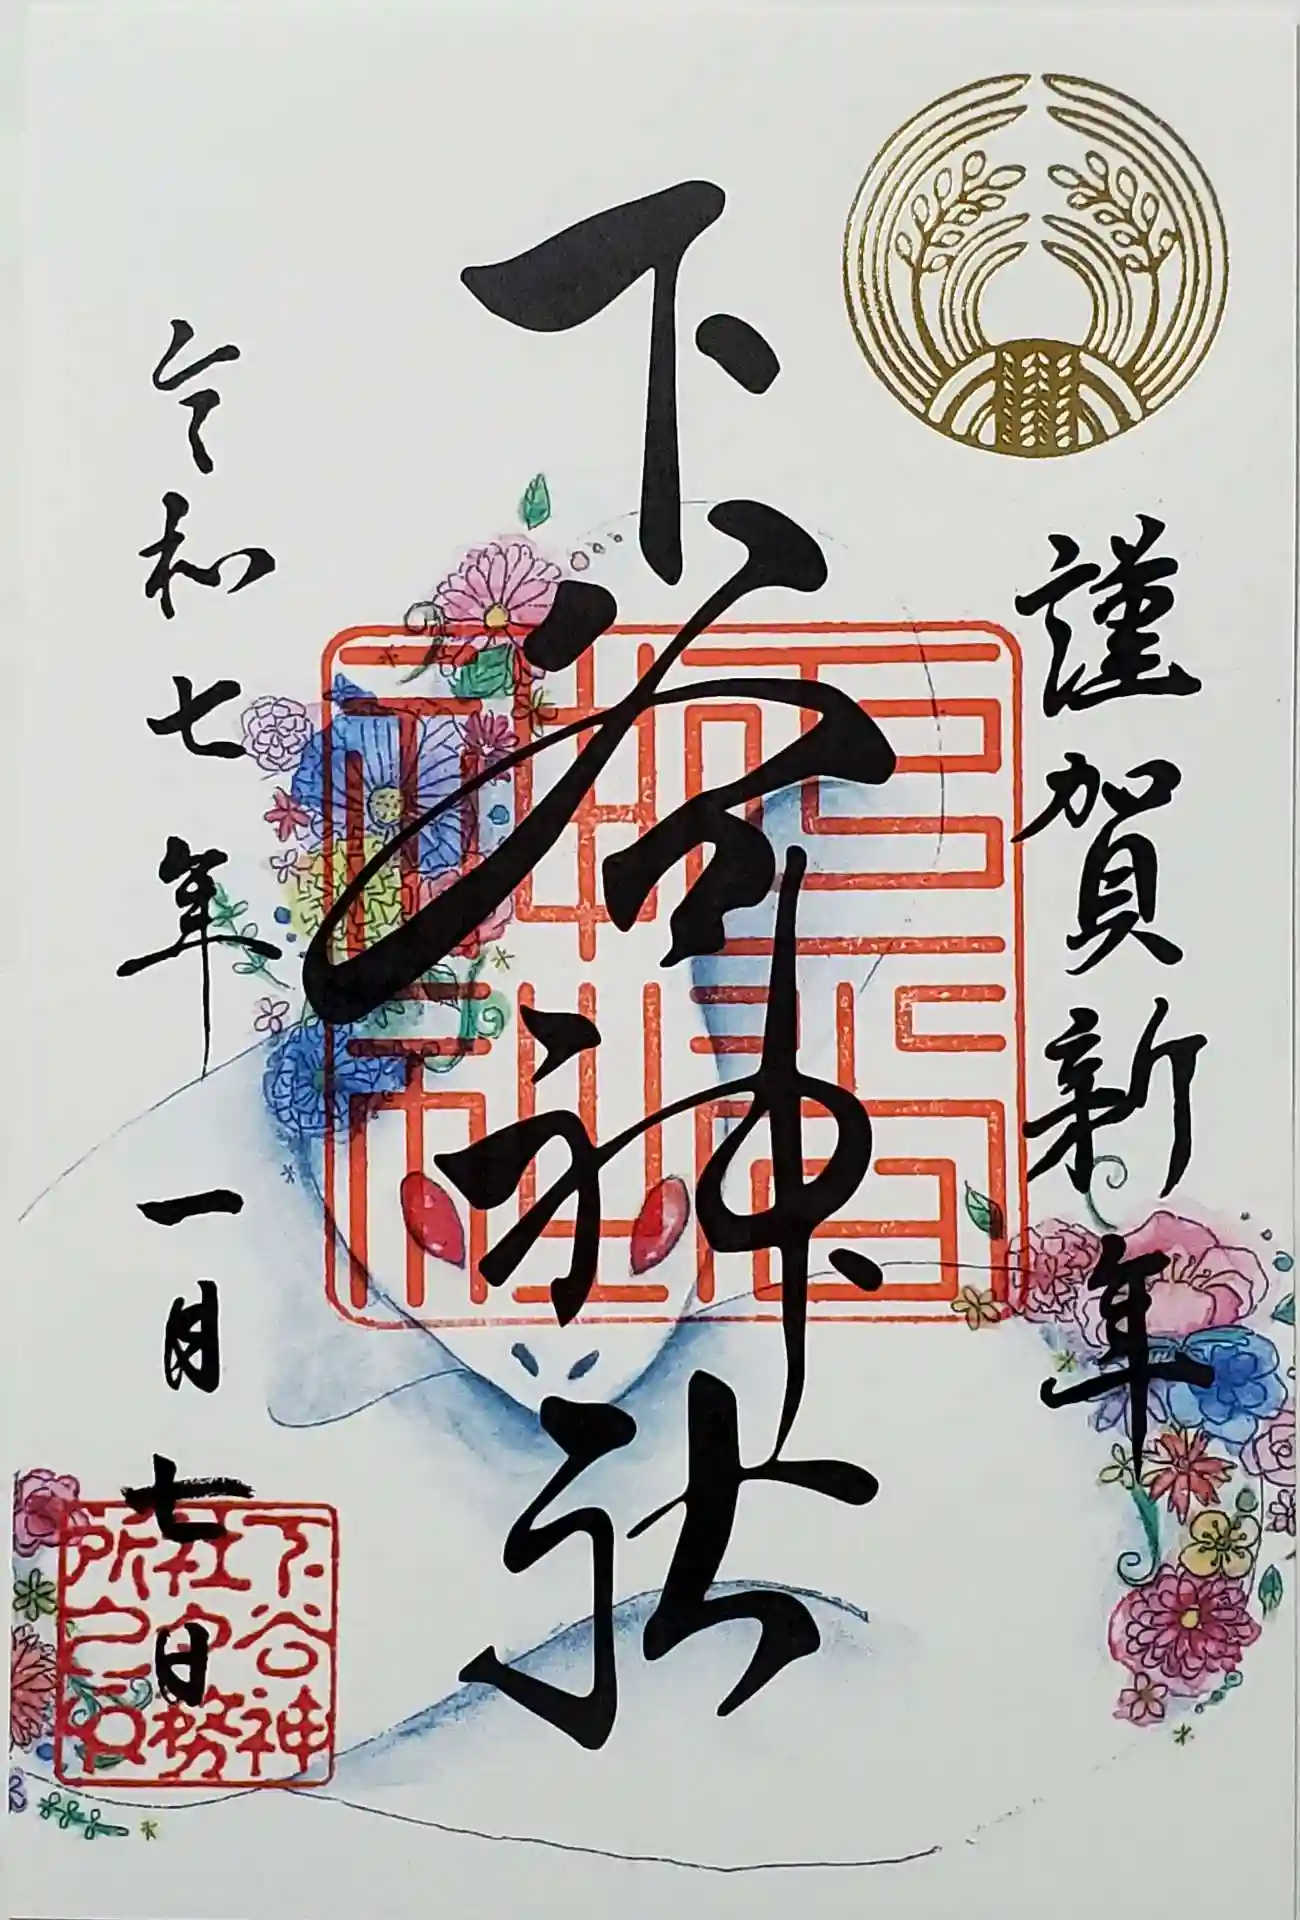 謹賀新年
下谷神社
令和七年一月七日
下谷神
社宮務
所之印